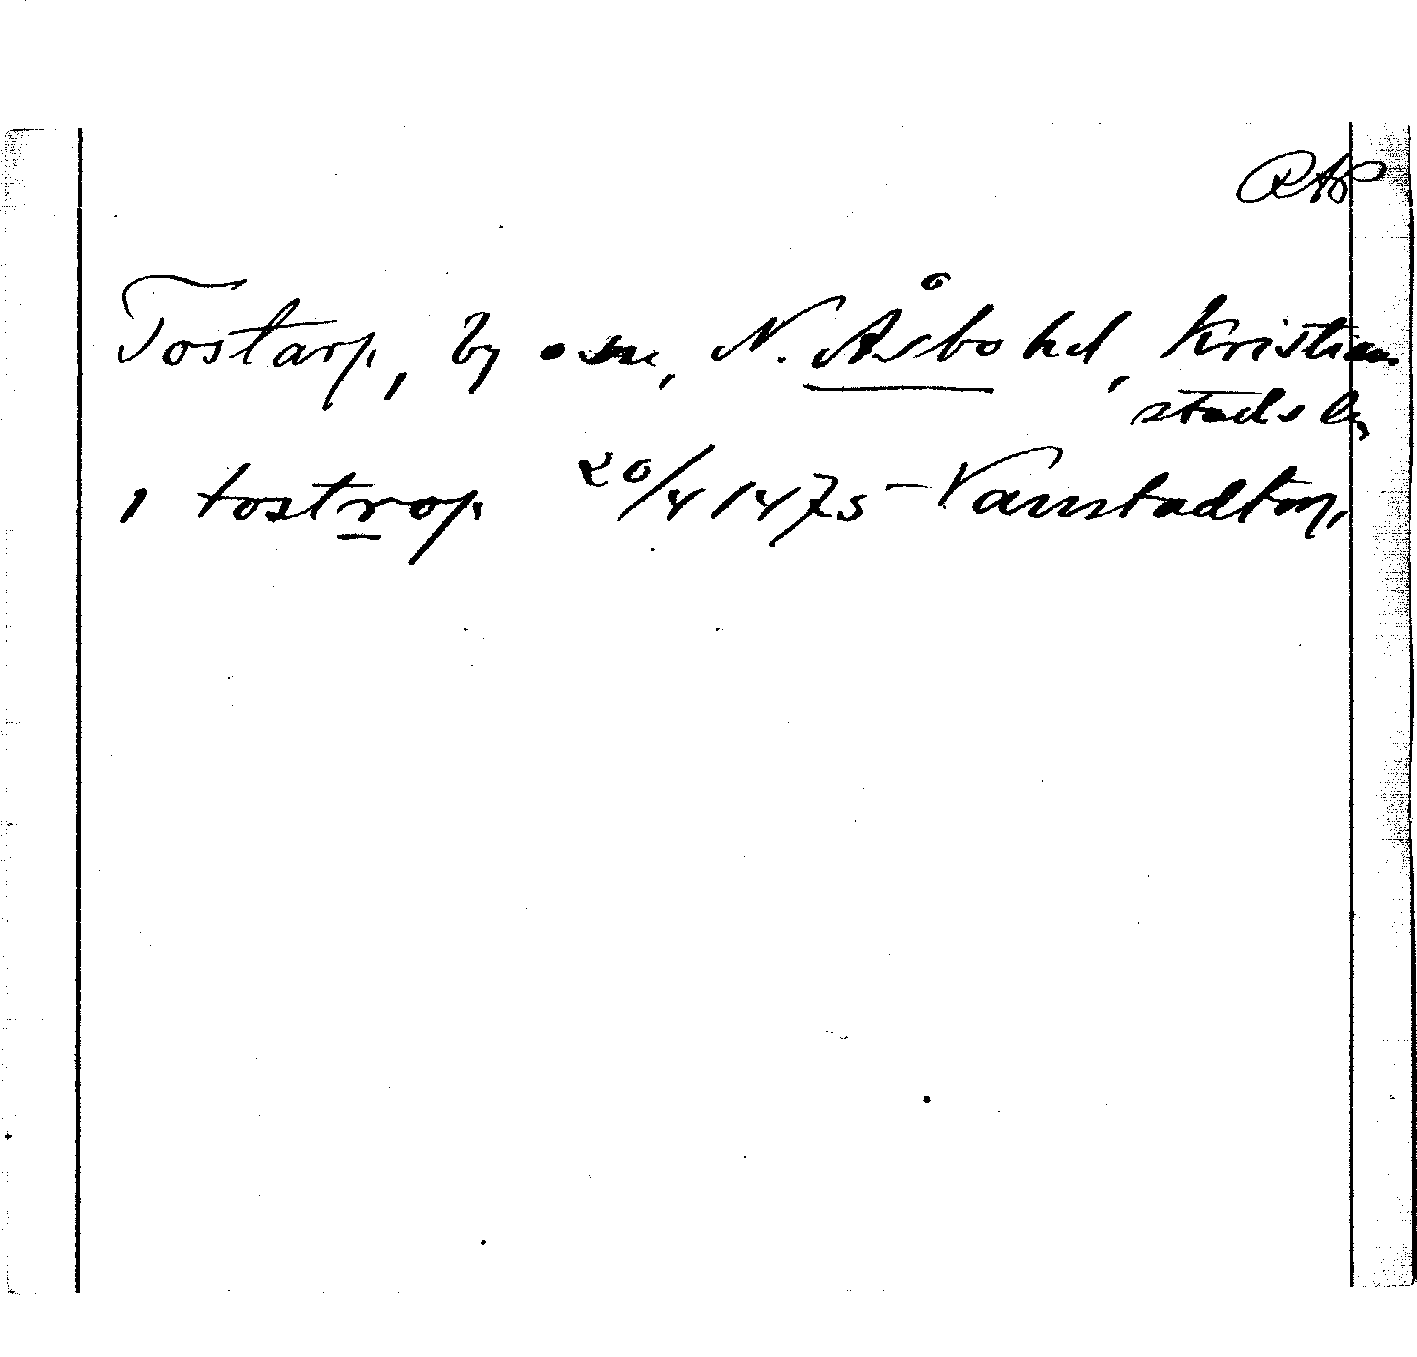 RAP
Tostarp, by o sn, N. Åsbo hd, Kristian
stads l.
i tostrop 20/4 1475 Vanstadtorp.